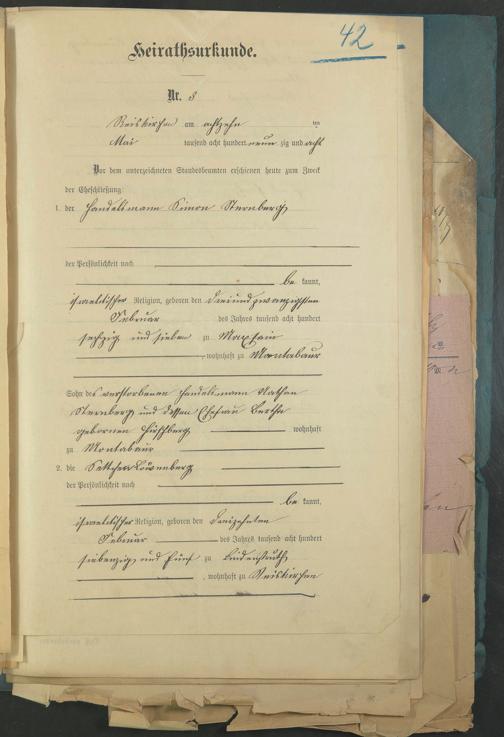 42
Heirathsurkunde.
Nr. 8
Reiskirchen am achtzehn ten
Mai tausend acht hundert neun zig und acht
Vor dem unterzeichneten Standesbeamten erschienen heute zum Zweck
der Eheschließung:
1. der Handelsmann Simon Sternberg,
der Persönlichkeit nach
be kannt,
israelitischer Religion, geboren den dreiundzwanzigsten
Februar des Jahres tausend acht hundert
sechzig und sieben zu Maxsain
, wohnhaft zu Montabaur
Sohn des verstorbenen Handelsmann Nathan
Sternberg und dessen Ehefrau Bertha
geborenen Hirschberg, wohnhaft
zu Montabaur
2. die Settchen Löwenberg
der Persönlichkeit nach
be kannt,
israelitischer Religion, geboren den dreizehnten
Februar des Jahres tausend acht hundert
siebenzig und fünf zu Lindenstruth
, wohnhaft zu Reiskirchen